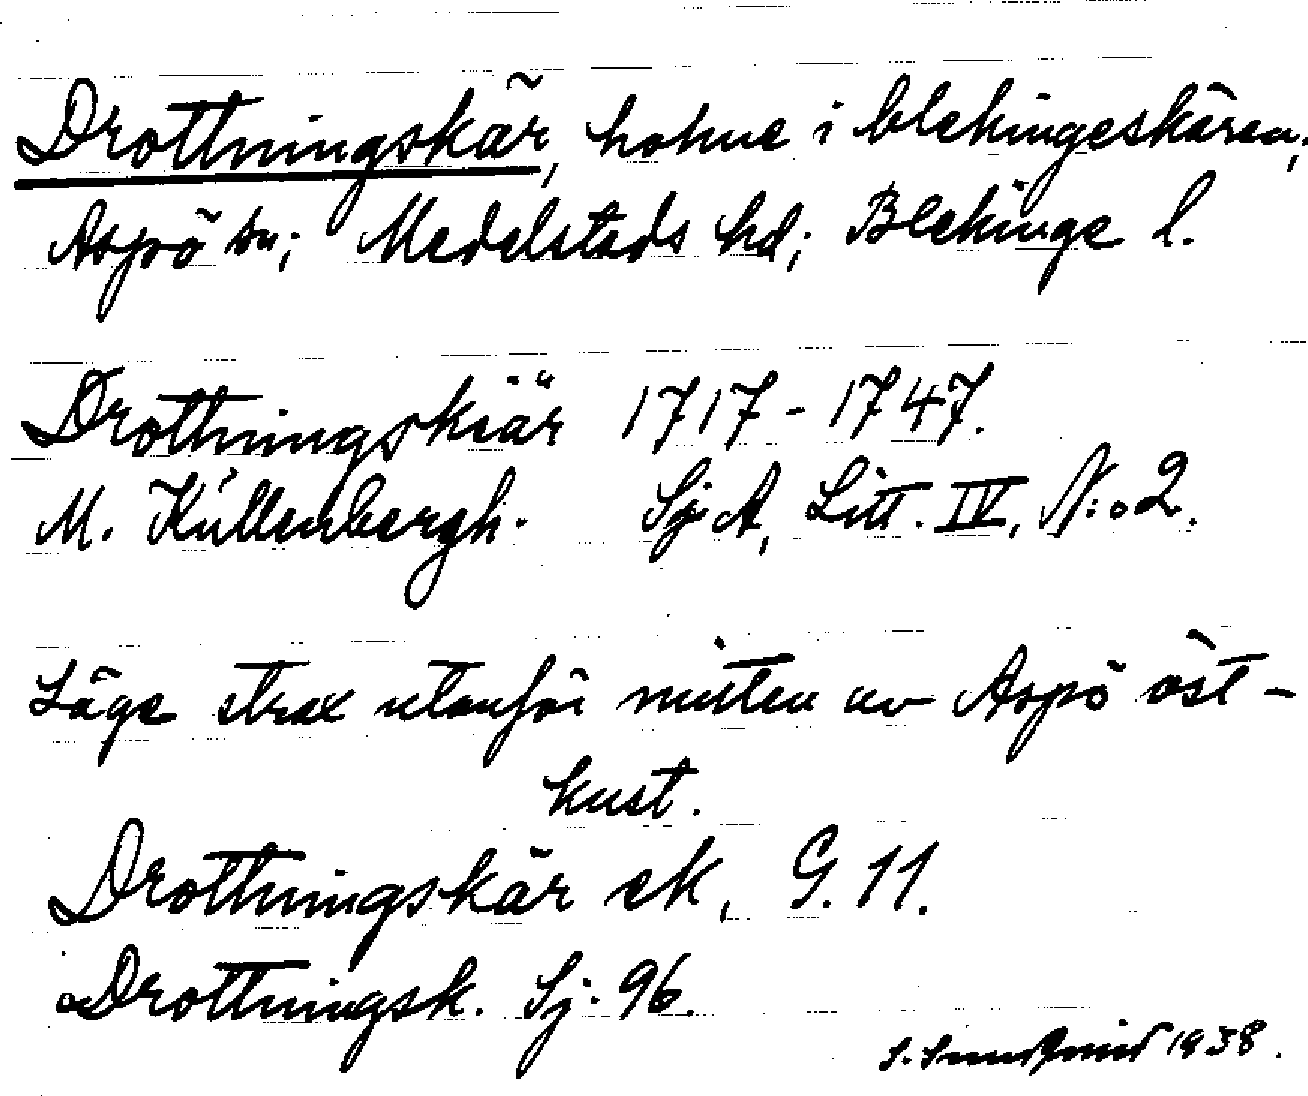 Drottningskär, holme i blekingeskären;
Aspö sn; Medelstads hd; Blekinge l.
Drottningskiär 1717-1747.
M. Küllenbergh. Sj. A, Litt. IV, N:o 2.
Läge strax utanför mitten av Aspö öst-
kust.
Drottningskär ek, G. 11.
Drottningsk. Sj. 96.
S. 1938.